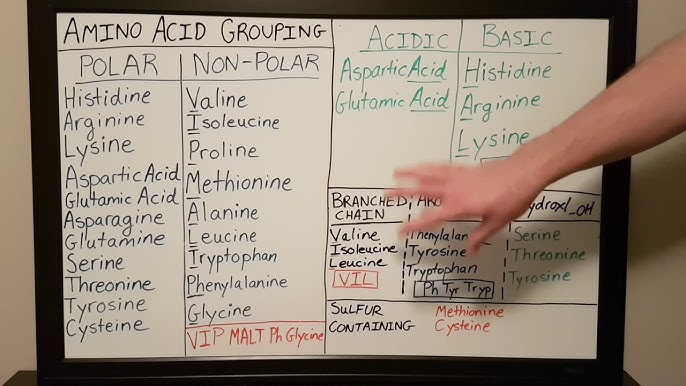 AMINO ACID GROUPING
POLAR
Histidine
Arginine
Lysine
Aspartic Acid
Glutamic Acid
Asparagine
Glutamine
Serine
Threonine
Tyrosine
Cysteine
NON-POLAR
Valine
Isoleucine
Proline
Methionine
Alanine
Leucine
Tryptophan
Phenylalanine
Glycine
VIP MALT Ph Glycine
ACIDIC
Aspartic Acid
Glutamic Acid
BASIC
Histidine
Arginine
Lysine
BRANCHED
CHAIN
Valine
Isoleucine
Leucine
VIL
Tyrosine
Tryptophan
Ph Tyr Tryp
OH
Serine
Threonine
Tyrosine
SULFUR
CONTAINING
Methionine
Cysteine